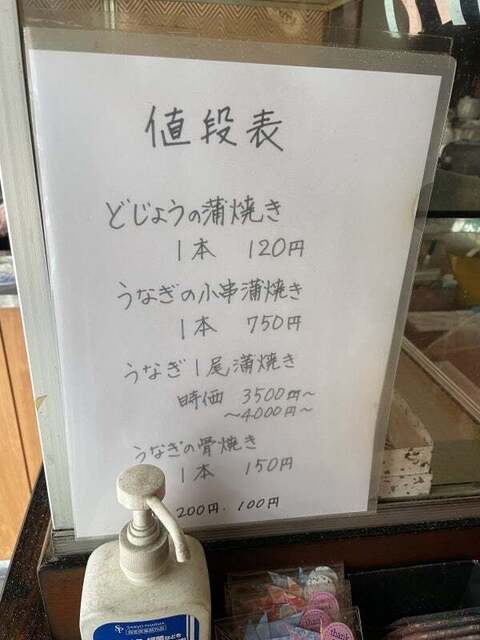 値段表
どじょうの蒲焼き
1本 120円
うなぎの小串蒲焼き
1本 750円
うなぎ1尾蒲焼き
時価 3500円〜
〜4000円〜
うなぎの骨焼き
1本 150円
200円. 100円
thank